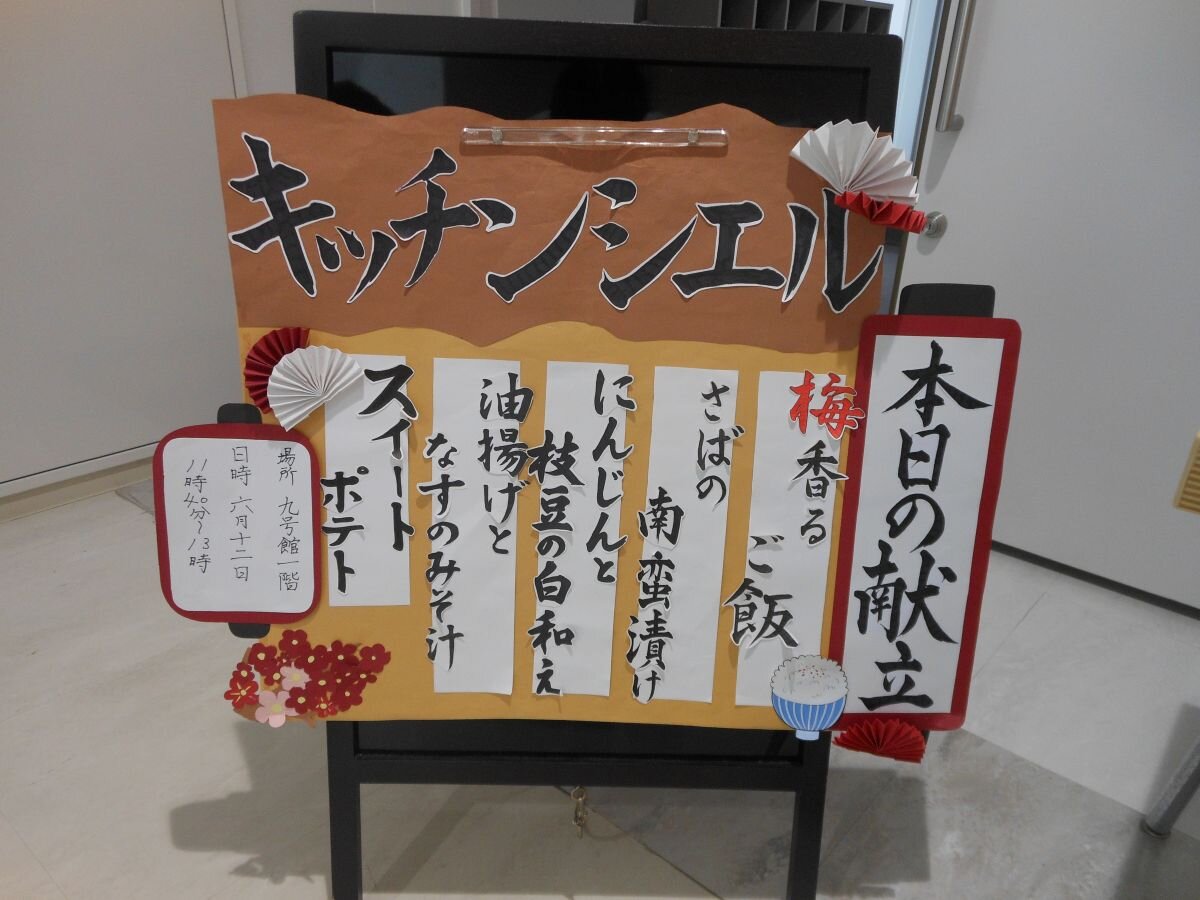 キッチンシエル
本日の献立
梅香る
ご飯
さばの
南蛮漬け
にんじんと
枝豆の白和え
油揚げと
なすのみそ汁
スイート
ポテト
場所 九号館一階
日時 六月十二日
11時40分～13時